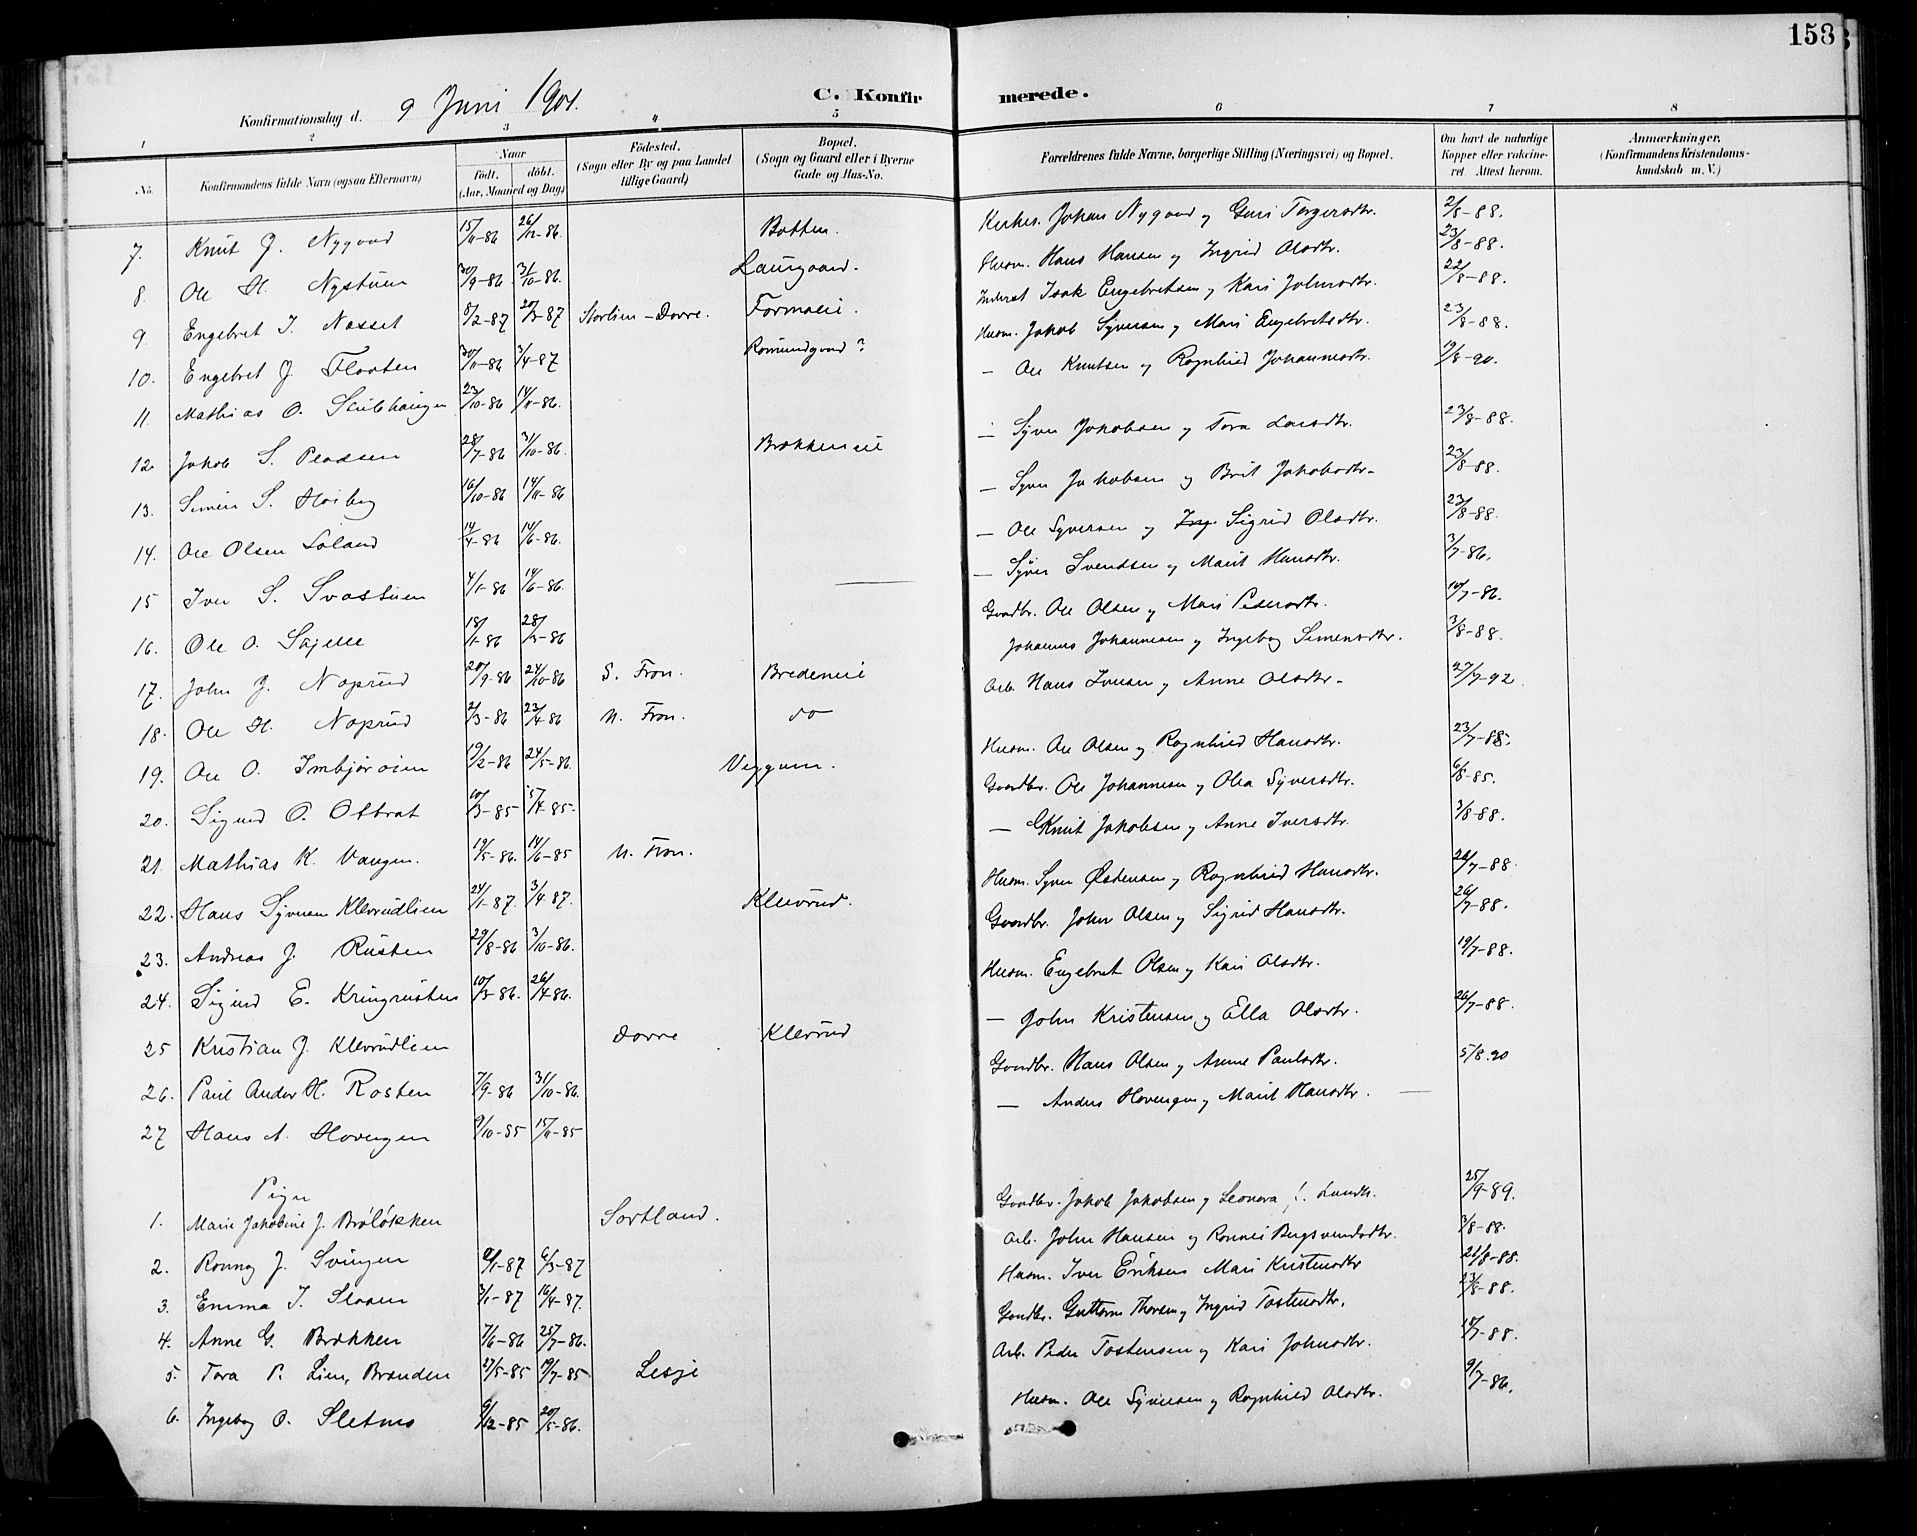 158
Konfirmationsdag d. 9 Juni 1901.
C. Konfirmerede.
1 2 3 4 5 6 7 8
No.
Konfirmandens fulde Navn (ogsaa Efternavn)
Naar
födt. döbt.
(Aar, Maaned og Dag)
Födested.
(Sogn eller By og paa Landet tillige Gaard)
Bopæl.
(Sogn og Gaard eller i Byerne Gade og Hus-No.
Forældrenes fulde Navne, borgerlige Stilling (Næringsvei) og Bopæl.
Om havt de naturlige Kopper eller vakcineret. Attest herom.
Anmærkninger.
(Konfirmandens Kristendomskundskab m. V.)
7. Knut J. Nygaard 15/11-86 26/12-86. Botten. Kirkes. Johan Nygaard og Guri Torgersdtr. 2/8-88.
8. Ole H. Nystuen 30/9-86 31/10-86. Laurgaard. Husm. Hans Hansen og Ingrid Olsdtr. 23/8-88.
9. Engebret I. Nasset 8/2-87 20/3-87 Storlien-Dovre. Formoeie. Inderst Isak Engebretsen og Kari Johnsdtr. 22/8-88.
10. Engebret J. Flaaten 30/11-86 3/4-87 Romundgaard? Husm. Jakob Syversen og Mari Engebretsdtr. 23/8-88.
11. Mathias O. Skulehaugen 23/10-86 14/11-86. — Ole Knutsen og Ragnhild Johannesdtr. 19/8-90.
12. Jakob S. Pladsen 28/7-86 31/10-86. Brækkeneie — Syver Jakobsen og Tora Larsdtr. 23/8-88.
13. Simen S. Høiberg 16/10-86 14/11-86 — Syver Jakobsen og Brit Jakobsdtr. 23/8-88.
14. Ole Olsen Loland 14/4-86 14/6-86. — Ole Syversen og Sigrid Olsdtr. 23/8-88.
15 Iver S. Svastuen 4/1-86 14/6-86. — Syver Svendsen og Marit Hansdtr. 3/7-86.
16. Ole O. Skjelle 18/1-86 28/3-86 Gaardbr. Ole Olsen og Mari Pedersdtr. 10/7-86.
17. John J. Naprud 20/9-86 24/10-86 S. Fron. Bredeneie Johannes Johannesen og Ingebog Simensdtr. 3/8-88.
18. Ole H. Naprud 2/3-86 23/4-86 N. Fron. do Arb. Hans Iversen og Anne Olsdtr. 27/7-92.
19. Ole O. Imbjørøien 19/2-86 24/5-86. Veggum. Husm. Ole Olsen og Ragnhild Hansdtr. 23/7-88.
20. Sigurd O. Ottbrat 10/3-85 5/4-85. Gaardbr. Ole Johannesen og Olea Syversdtr. 6/8-85.
21. Mathias K. Vangen. 19/5-86. 14/6-85 N. Fron. — Knut Jakobsen og Anne Iversdtr. 3/8-88.
22. Hans Syversen Klevrudlien 24/1-87. 3/4-87. Klevrud. Husm. Syver Østensen og Ragnhild Hansdtr. 26/7-88.
23. Andreas J. Rusten 29/8-86 3/10-86. Gaardbr. John Olsen og Sigrid Hansdtr. 26/7-88.
24. Sigurd E. Kringrusten 10/3-86. 26/4-86. Husm. Engebret Olsen og Kari Olsdtr. 19/7-88.
25 Kristian J. Klevrudlien Dovre Klevrud — John Kristensen og Ella Olsdtr. 26/7-88.
26. Paul Anders H. Rosten 7/9-86 31/10-86. Gaardbr. Hans Olsen og Anne Paulsdtr. 5/8.90
27 Hans A. Hovengen 9/10-85 15/11-85 — Anders Hovengen og Marit Hansdtr. —
Piger
1. Marie Jakobine J. Bråløkken Sortland. Gaardbr. Jakob Jakobsen og Leonora 25/9-89.
2. Ronnog J. Svingen 9/1-87 6/3-87 Arb. John Hansen og Ronnei Bergsvendsdtr. 3/8-88.
3. Emma I. Sloaen 3/1-87 16/4-87. Husm. Iver Eriksen Mari Kristensdtr 21/8-88.
4. Anne G. Brækken 7/6-86 25/7-86. Gaardbr. Guttorm Thorsen og Ingrid Tostensdtr. 23/8-88.
5. Tora P. Lien, Brænden 27/5-85 19/7-85 Lesje Arb. Peder Tostensen og Kari Johnsdtr. 18/7-88.
6. Ingebog O. Sletmo 9/12-85 20/5-86. Husm. Ole Syversen og Ragnhild Olsdtr. 9/7-86.